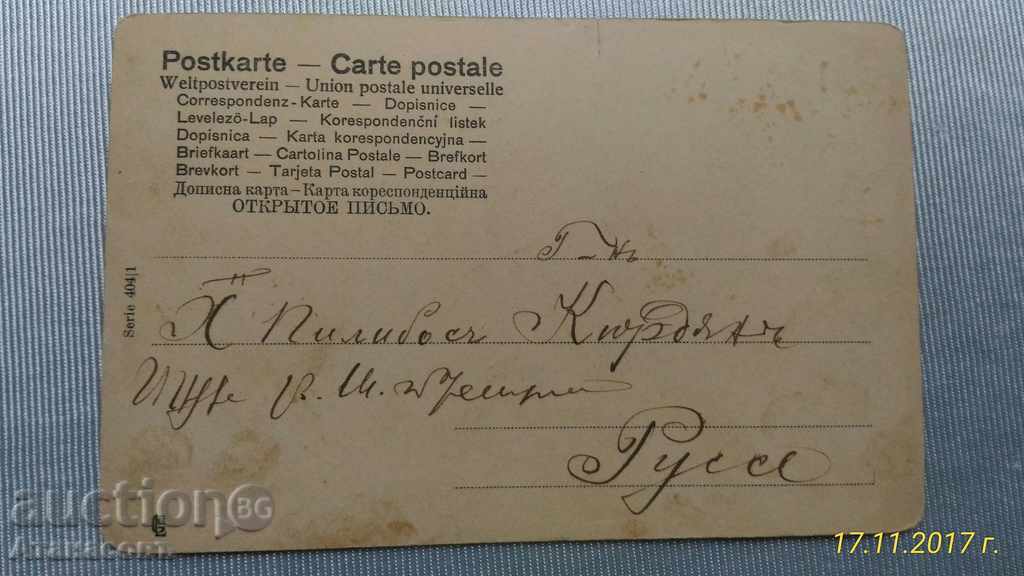 Postkarte — Carte postale
Weltpostverein — Union postale universelle
Correspondenz-Karte — Dopisnice —
Levelező-Lap — Korespondenční listek
Dopisnica — Karta korespondencyjna —
Briefkaart — Cartolina Postale — Brefkort
Brevkort — Tarjeta Postal — Postcard —
Дописна карта — Карта кореспонденційна
ОТКРЫТОЕ ПИСЬМО.
Serie 404|1
Г-нъ
Х Пилибосъ Кюрдянъ
Руссе
auctionBG
Атанасовъ
17.11.2017 г.